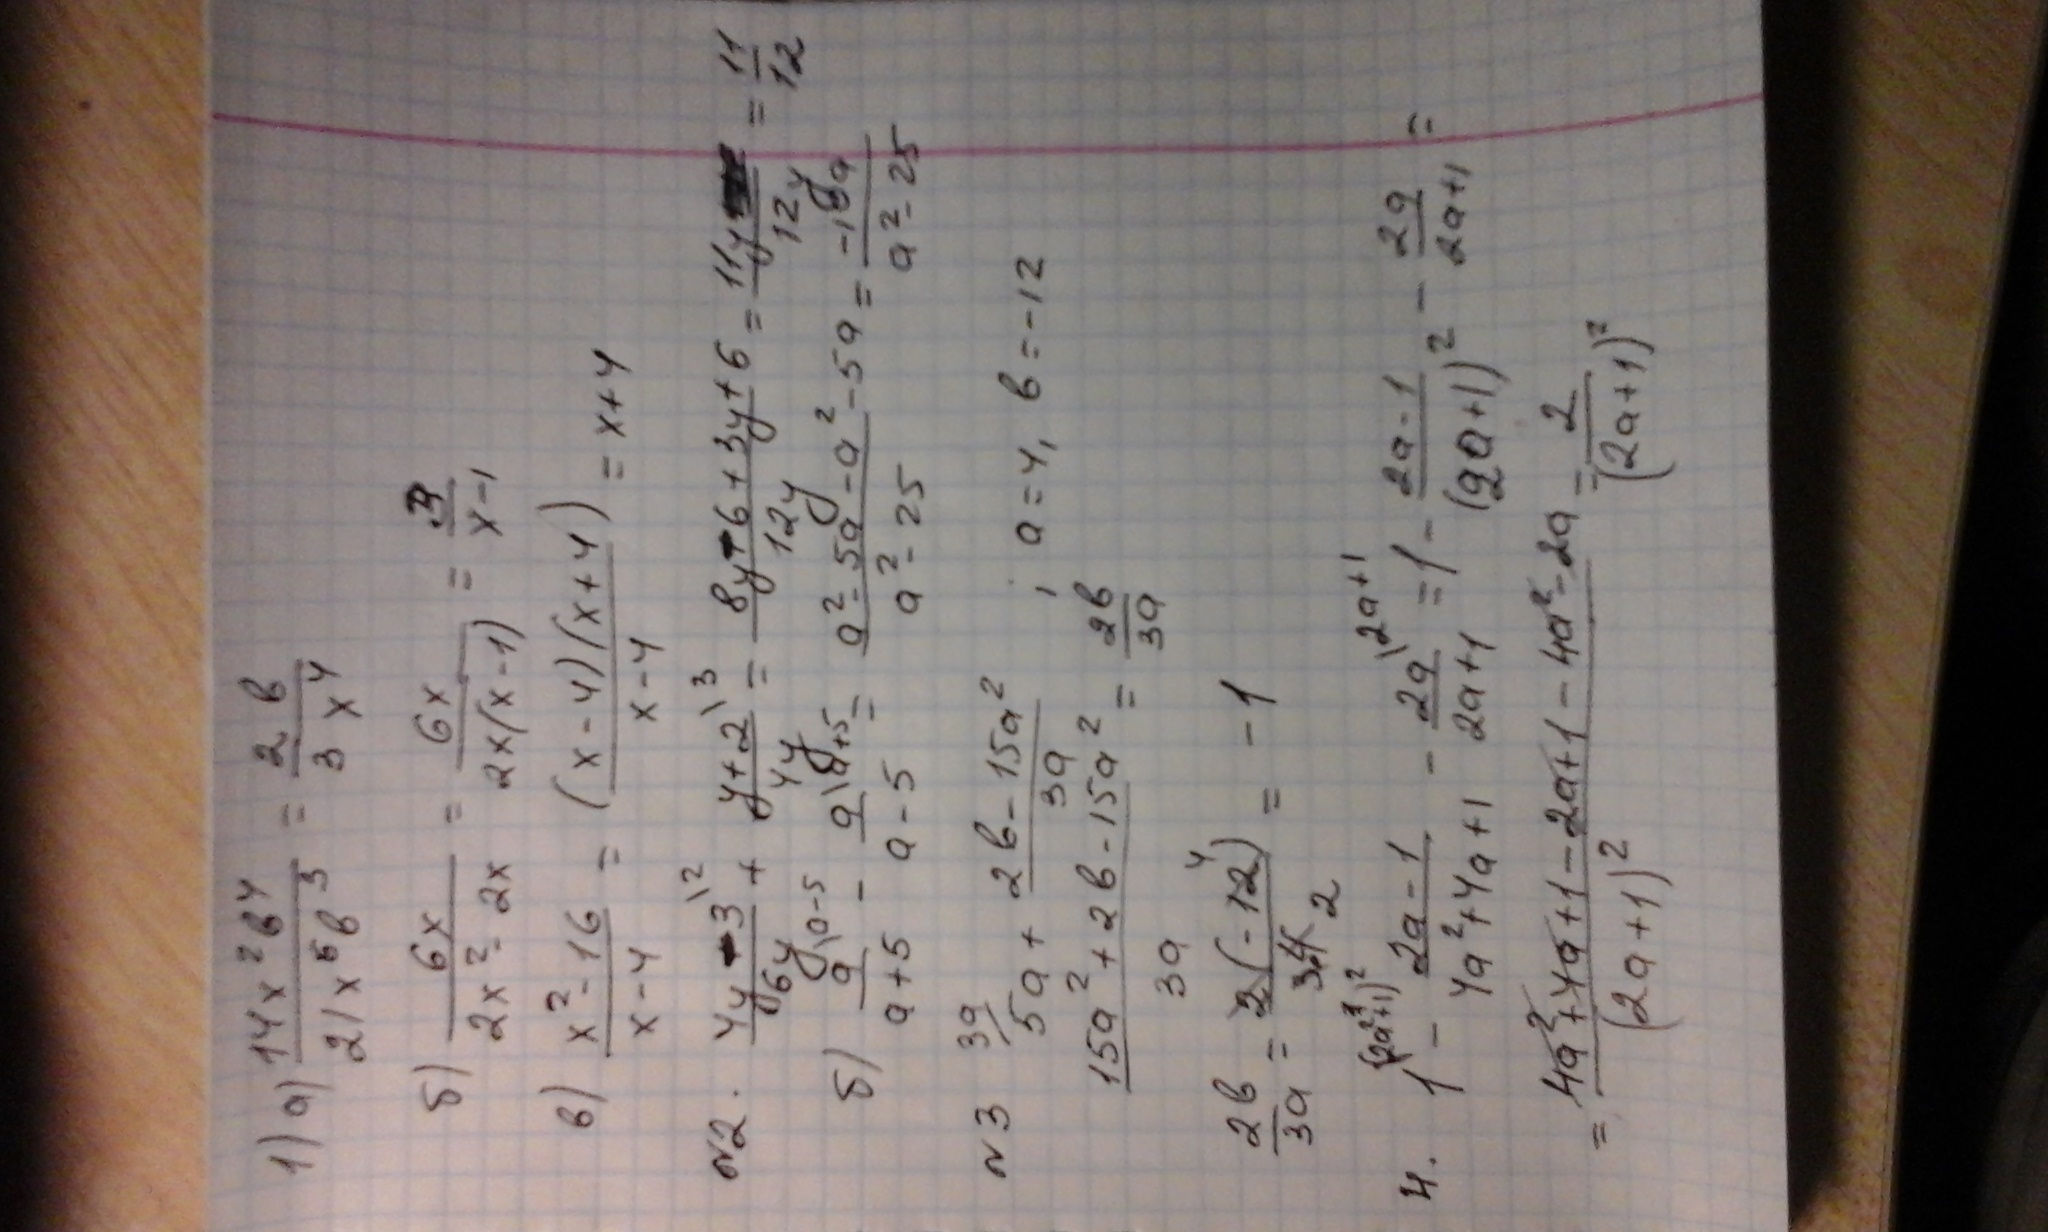 1) а) 14x²b⁴/21x⁶b³ = 2b/3x⁴
б) 6x/2x²-2x = 6x/2x(x-1) = 3/x-1
в) x²-16/x-4 = (x-4)(x+4)/x-4 = x+4
№2. 4y-3\²/6y + y+2\³/4y = 8y-6+3y+6/12y = 11y/12y = 11/12
б) a\a-5/a+5 - a\a+5/a-5 = a²-5a-a²-5a/a²-25 = -10a/a²-25
№3 3a/5a + 2b-15a²/3a, a=4, b=-12
15a²+2b-15a²/3a = 2b/3a
2b/3a = 2(-12)/3·4 = -1
4. 1 - 2a-1/4a²+4a+1 - 2a\2a+1/2a+1 = 1 - 2a-1/(2a+1)² - 2a/2a+1 =
= 4a²+4a+1-2a+1-4a²-2a/(2a+1)² = 2/(2a+1)²